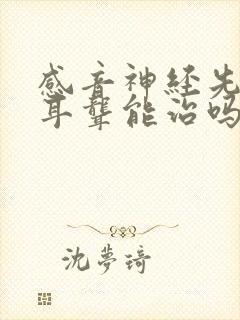 感音神经先
耳聋能治吗
沈夢琦